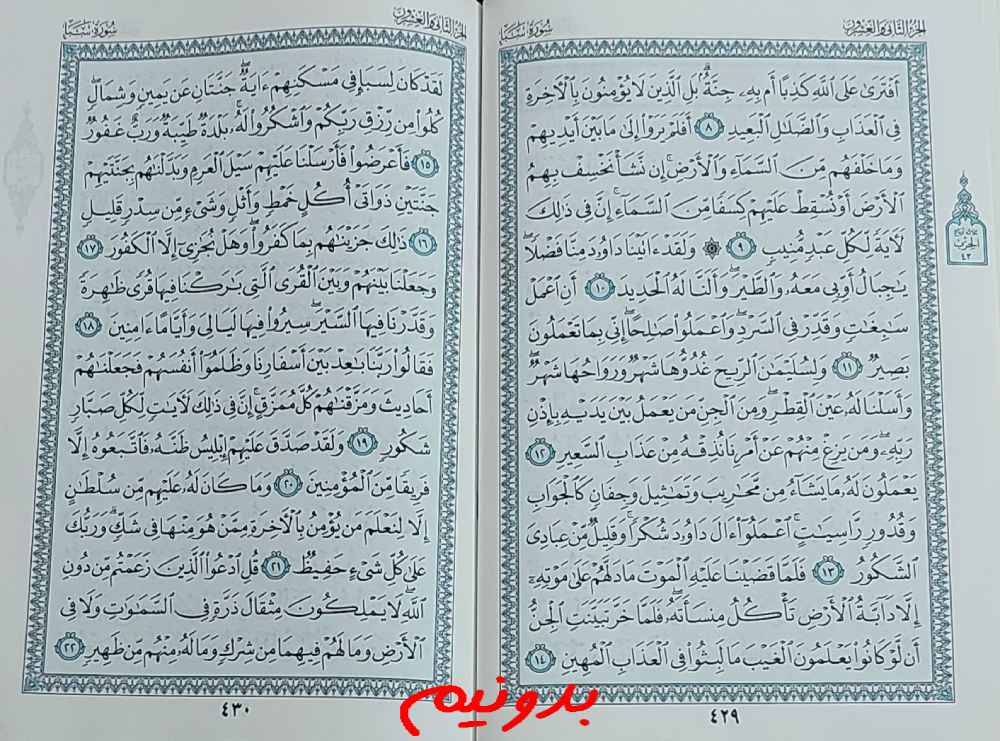 الجُزءُ الثَّانِي وَالعِشْرُونَ سُورَةُ سَبَإٍ
أَفْتَرَىٰ عَلَى ٱللَّهِ كَذِبًا أَم بِهِۦ جِنَّةُۢ بَلِ ٱلَّذِينَ لَا يُؤْمِنُونَ بِٱلْأَخِرَةِ
فِي ٱلْعَذَابِ وَٱلضَّلَٰلِ ٱلْبَعِيدِ ٨ أَفَلَمْ يَرَوْا۟ إِلَىٰ مَا بَيْنَ أَيْدِيهِمْ
وَمَا خَلْفَهُم مِّنَ ٱلسَّمَآءِ وَٱلْأَرْضِ إِن نَّشَأْ نَخْسِفْ بِهِمُ
ٱلْأَرْضَ أَوْ نُسْقِطْ عَلَيْهِمْ كِسَفًا مِّنَ ٱلسَّمَآءِ إِنَّ فِي ذَٰلِكَ
لَأَيَةً لِّكُلِّ عَبْدٍ مُّنِيبٍ ٩ ۞ وَلَقَدْ ءَاتَيْنَا دَاوُۥدَ مِنَّا فَضْلًا
يَٰجِبَالُ أَوِّبِي مَعَهُۥ وَٱلطَّيْرَ وَأَلَنَّا لَهُ ٱلْحَدِيدَ ١٠ أَنِ ٱعْمَلْ
سَٰبِغَٰتٍ وَقَدِّرْ فِي ٱلسَّرْدِ وَٱعْمَلُوا۟ صَٰلِحًا إِنِّي بِمَا تَعْمَلُونَ
بَصِيرٌ ١١ وَلِسُلَيْمَٰنَ ٱلرِّيحَ غُدُوُّهَا شَهْرٌ وَرَوَاحُهَا شَهْرٌ
وَأَسَلْنَا لَهُۥ عَيْنَ ٱلْقِطْرِ وَمِنَ ٱلْجِنِّ مَن يَعْمَلُ بَيْنَ يَدَيْهِ بِإِذْنِ
رَبِّهِۦ وَمَن يَزِغْ مِنْهُمْ عَنْ أَمْرِنَا نُذِقْهُ مِنْ عَذَابِ ٱلسَّعِيرِ ١٢
يَعْمَلُونَ لَهُۥ مَا يَشَآءُ مِن مَّحَٰرِيبَ وَتَمَٰثِيلَ وَجِفَانٍ كَٱلْجَوَابِ
وَقُدُورٍ رَّاسِيَٰتٍ ٱعْمَلُوٓا۟ ءَالَ دَاوُۥدَ شُكْرًا وَقَلِيلٌ مِّنْ عِبَادِيَ
ٱلشَّكُورُ ١٣ فَلَمَّا قَضَيْنَا عَلَيْهِ ٱلْمَوْتَ مَا دَلَّهُمْ عَلَىٰ مَوْتِهِۦٓ
إِلَّا دَآبَّةُ ٱلْأَرْضِ تَأْكُلُ مِنسَأَتَهُۥ فَلَمَّا خَرَّ تَبَيَّنَتِ ٱلْجِنُّ
أَن لَّوْ كَانُوا۟ يَعْلَمُونَ ٱلْغَيْبَ مَا لَبِثُوا۟ فِي ٱلْعَذَابِ ٱلْمُهِينِ ١٤
٤٢٩
الحِزْبُ
٤٣
الجُزءُ الثَّانِي وَالعِشْرُونَ سُورَةُ سَبَإٍ
لَقَدْ كَانَ لِسَبَإٍ فِي مَسْكَنِهِمْ ءَايَةٌ جَنَّتَانِ عَن يَمِينٍ وَشِمَالٍ
كُلُوا۟ مِن رِّزْقِ رَبِّكُمْ وَٱشْكُرُوا۟ لَهُۥ بَلْدَةٌ طَيِّبَةٌ وَرَبٌّ غَفُورٌ
١٥ فَأَعْرَضُوا۟ فَأَرْسَلْنَا عَلَيْهِمْ سَيْلَ ٱلْعَرِمِ وَبَدَّلْنَٰهُم بِجَنَّتَيْهِمْ
جَنَّتَيْنِ ذَوَاتَيْ أُكُلٍ خَمْطٍ وَأَثْلٍ وَشَيْءٍ مِّن سِدْرٍ قَلِيلٍ
١٦ ذَٰلِكَ جَزَيْنَٰهُم بِمَا كَفَرُوا۟ وَهَلْ نُجَٰزِيٓ إِلَّا ٱلْكَفُورَ ١٧
وَجَعَلْنَا بَيْنَهُمْ وَبَيْنَ ٱلْقُرَى ٱلَّتِي بَٰرَكْنَا فِيهَا قُرًى ظَٰهِرَةً
وَقَدَّرْنَا فِيهَا ٱلسَّيْرَ سِيرُوا۟ فِيهَا لَيَالِيَ وَأَيَّامًا ءَامِنِينَ ١٨
فَقَالُوا۟ رَبَّنَا بَٰعِدْ بَيْنَ أَسْفَارِنَا وَظَلَمُوٓا۟ أَنفُسَهُمْ فَجَعَلْنَٰهُمْ
أَحَادِيثَ وَمَزَّقْنَٰهُمْ كُلَّ مُمَزَّقٍ إِنَّ فِي ذَٰلِكَ لَأَيَٰتٍ لِّكُلِّ صَبَّارٍ
شَكُورٍ ١٩ وَلَقَدْ صَدَّقَ عَلَيْهِمْ إِبْلِيسُ ظَنَّهُۥ فَٱتَّبَعُوهُ إِلَّا
فَرِيقًا مِّنَ ٱلْمُؤْمِنِينَ ٢٠ وَمَا كَانَ لَهُۥ عَلَيْهِم مِّن سُلْطَٰنٍ
إِلَّا لِنَعْلَمَ مَن يُؤْمِنُ بِٱلْأَخِرَةِ مِمَّنْ هُوَ مِنْهَا فِي شَكٍّ وَرَبُّكَ
عَلَىٰ كُلِّ شَيْءٍ حَفِيظٌ ٢١ قُلِ ٱدْعُوا۟ ٱلَّذِينَ زَعَمْتُم مِّن دُونِ
ٱللَّهِ لَا يَمْلِكُونَ مِثْقَالَ ذَرَّةٍ فِي ٱلسَّمَٰوَٰتِ وَلَا فِي
ٱلْأَرْضِ وَمَا لَهُمْ فِيهِمَا مِن شِرْكٍ وَمَا لَهُۥ مِنْهُم مِّن ظَهِيرٍ ٢٢
٤٣٠
بدونیم